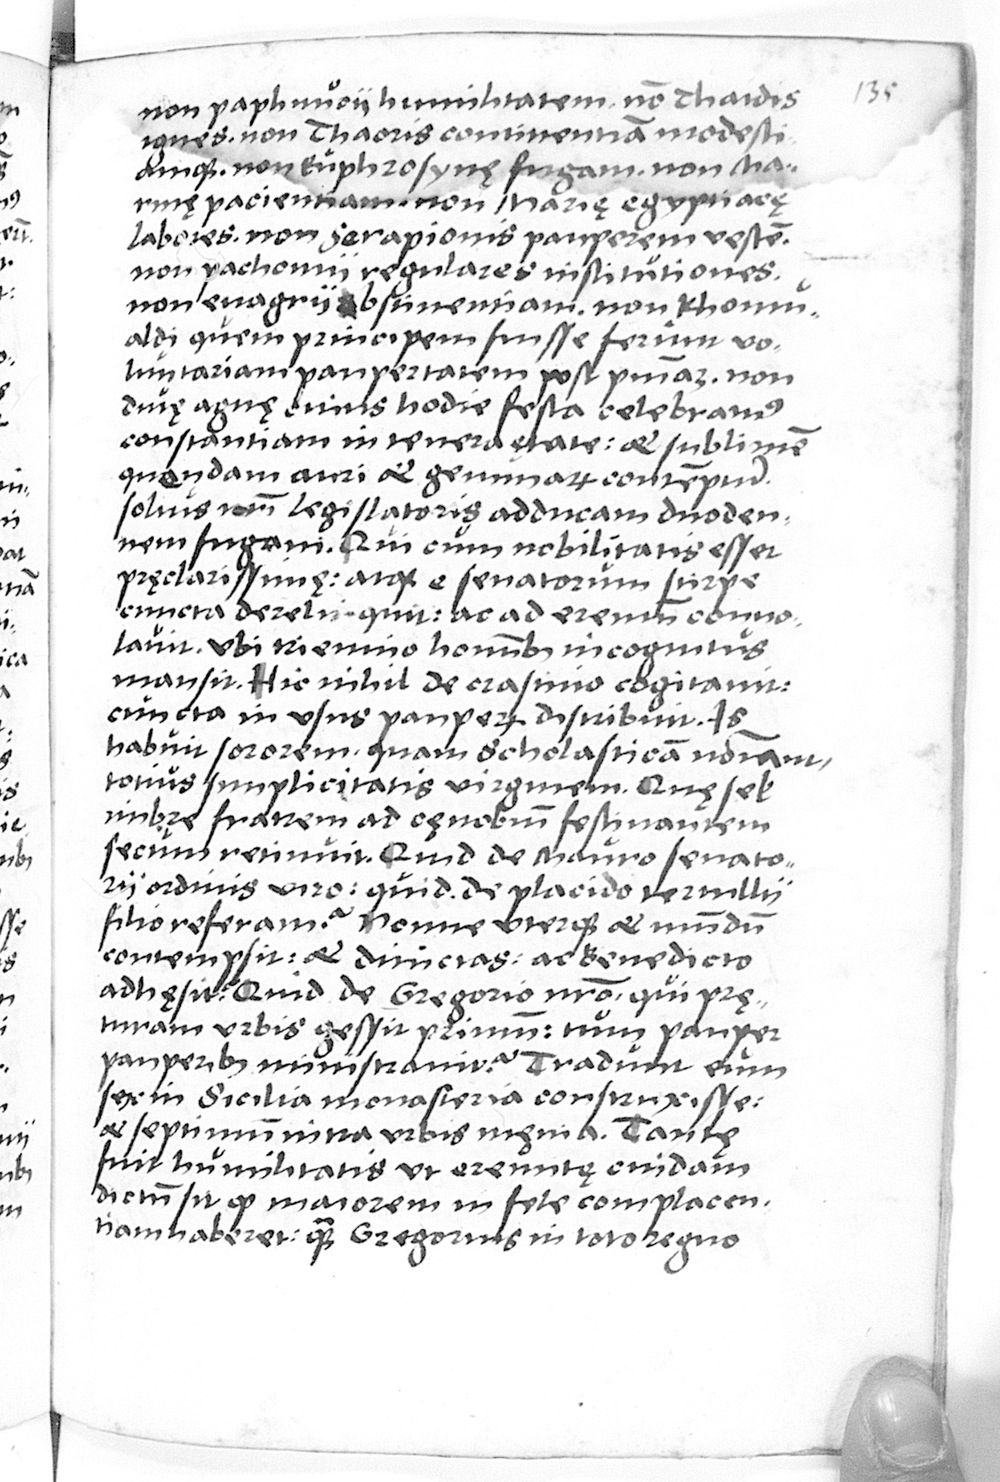 135
non paphnucij humilitatem. nō Thaidis
ignes. non Thaoris continentiā modesti-
amq;. non Euphrosynę fugam. non Ma-
rinę pacientiam. non Marię egyptiacę
labores. non Serapionis pauperem vestē.
non pachomij regulares institutiones.
non euagrij abstinentiam. non Rhomu-
aldi quem principem fuisse ferunt vo-
luntariam paupertatem post
non
diuę agnę cuius hodie festa celebramꝰ
constantiam in tenera ętate: & sublimē
quendam auri & gemmarꝝ contēptū.
solius nr̄i legislatoris adducam duoden-
nem fugam. Qui cum nobilitatis esset
pręclarissimę: atq; e senatorum stirpe
cuncta dereliquit: ac ad eremū conuo-
lauit. vbi triennio hominibꝫ incognitus
mansit. Hic nihil de crastino cogitauit:
cuncta in vsus pauperꝝ distribuit. Is
habuit sororem. quam Scholasticā noīant
totius simplicitatis virginem. Quę
imbre fratrem ad cęnobiū festinantem
secum retinuit. Quid de Mauro senato-
rij ordinis viro: quid de placido tertullij
filio referam? Nonne vterq; & mūdū
contempsit: & diuicias: ac Benedicto
adhęsit? Quid de Gregorio nr̄o. qui prę-
turam vrbis gessit primū: tum pauper
pauperibꝫ ministrauit? Tradunt eum
sex in Sicilia monasteria construxisse:
& septimū intra vrbis męnia. Tantę
fuit humilitatis vt eremitę cuidam
dictū sit ꝙ maiorem in fele complacen-
tiam haberet: q̄ꝫ Gregorius in toto regno